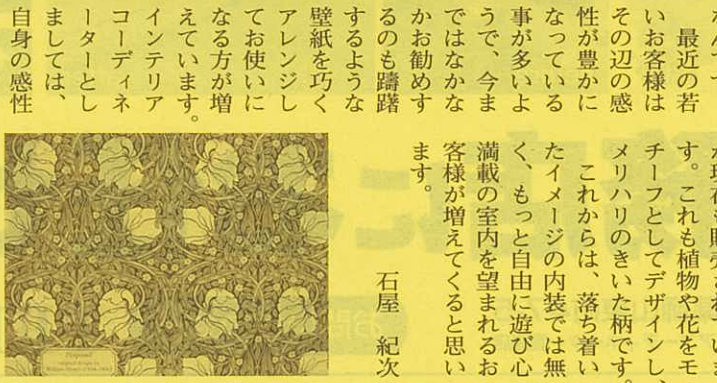 最近の若
いお客様は
その辺の感
性が豊かに
なっている
事が多いよ
うで、今ま
ではなかな
かお勧めす
るのも躊躇
するような
壁紙を巧く
アレンジし
てお使いに
なる方が増
えています。
インテリア
コーディネ
ーターとし
ましては、
自身の感性
す。これも植物や花をモ
チーフとしてデザインし、
メリハリのきいた柄です。
これからは、落ち着い
たイメージの内装では無
く、もっと自由に遊び心
満載の室内を望まれるお
客様が増えてくると思い
ます。
石屋 紀次
Pimpernel